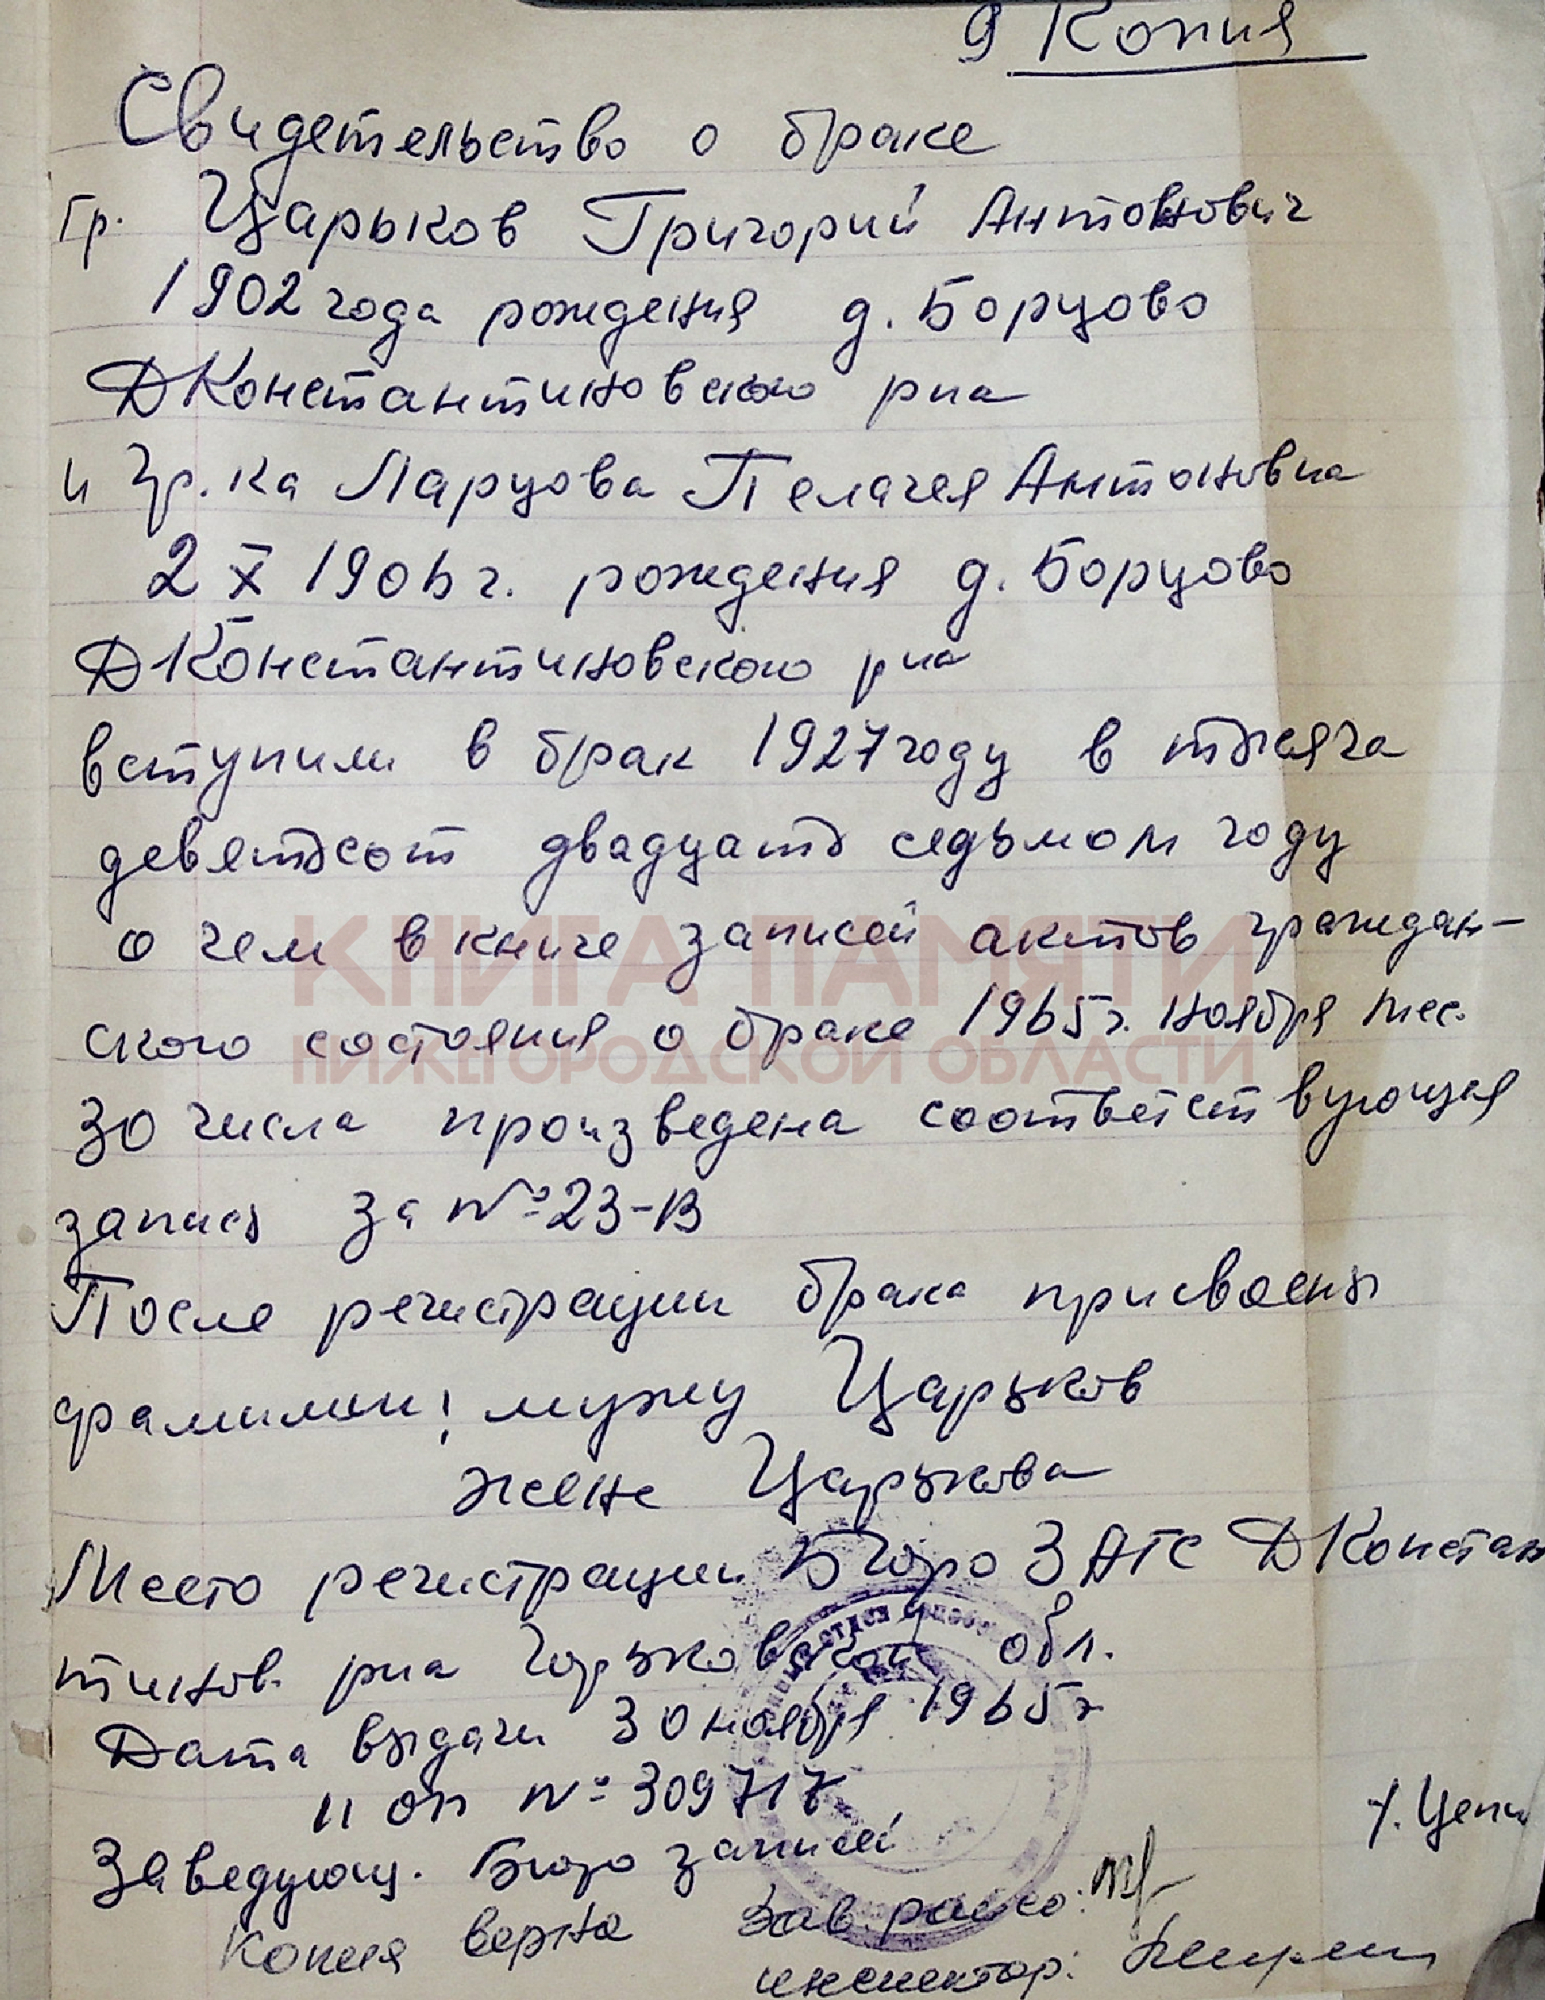 9 Копия
Свидетельство о браке
Гр. Царьков Григорий Антонович
1902 года рождения д. Борцово
ДКонстантиновского рна
и Гр.ка Ларцова Пелагея Антоновна
2 X 1906 г. рождения д. Борцово
ДКонстантиновского рна
вступили в брак 1927 году в тысяча
девятьсот двадцать седьмом году
о чем в книге записей актов граждан-
ского состояния о браке 1965 г. ноября мес.
30 числа произведена соответствующая
запись за №23-В
КНИГА ПАМЯТИ
НИЖЕГОРОДСКОЙ ОБЛАСТИ
После регистрации брака присвоены
фамилии: мужу Царьков
жене Царькова
Место регистрации Бюро ЗАГС ДКонстан
тинов. рна Горьковской обл.
Дата выдачи 30 ноября 1965 г
№ 309717
Заведующ. Бюро записей
Копия верна Зав. райсо:
инспектор: